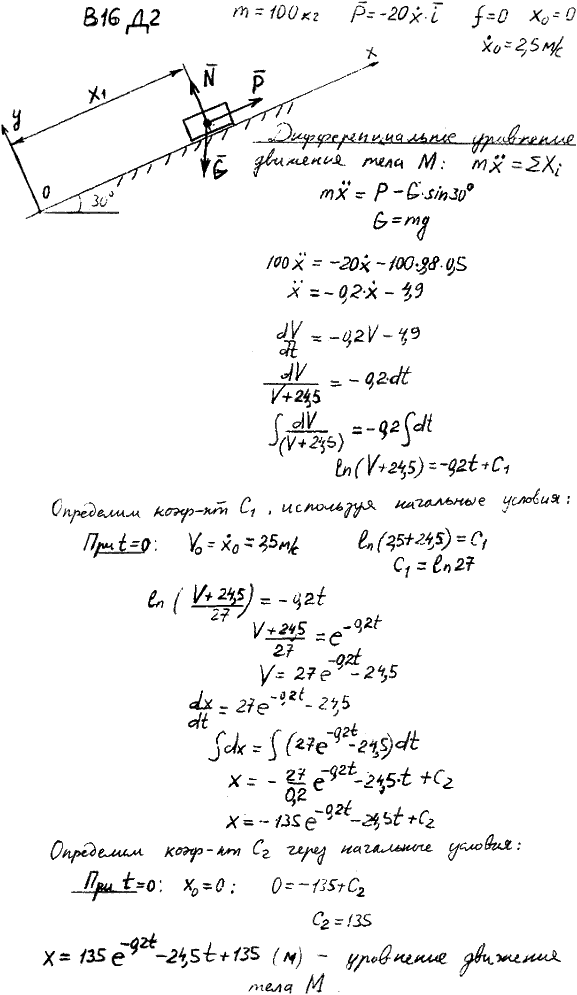 В16 Д2   m = 100 кг   P̄ = -20ẋ·ī   f = 0   x₀ = 0
ẋ₀ = 2,5 м/с
y   x₁   N̄   P̄   x
Ḡ
0   30°
Дифференциальное уравнение
движения тела М: mẍ = ΣXᵢ
mẍ = P - G·sin30°
G = mg
100ẍ = -20ẋ - 100·9,8·0,5
ẍ = -0,2·ẋ - 4,9
dV/dt = -0,2V - 4,9
dV/(V+24,5) = -0,2·dt
∫ dV/(V+24,5) = -0,2∫dt
ln(V+24,5) = -0,2t + C₁
Определим коэф-нт C₁, используя начальные условия:
При t=0: V₀ = ẋ₀ = 2,5 м/с   ln(2,5+24,5) = C₁
C₁ = ln27
ln((V+24,5)/27) = -0,2t
(V+24,5)/27 = e^(-0,2t)
V = 27e^(-0,2t) - 24,5
dx/dt = 27e^(-0,2t) - 24,5
∫dx = ∫(27e^(-0,2t) - 24,5)dt
x = - 27/0,2 e^(-0,2t) - 24,5·t + C₂
x = -135e^(-0,2t) - 24,5t + C₂
Определим коэф-нт C₂ через начальные условия:
При t=0: x₀=0: 0 = -135 + C₂
C₂ = 135
x = 135e^(-0,2t) - 24,5t + 135 (м) - уравнение движения
тела М.